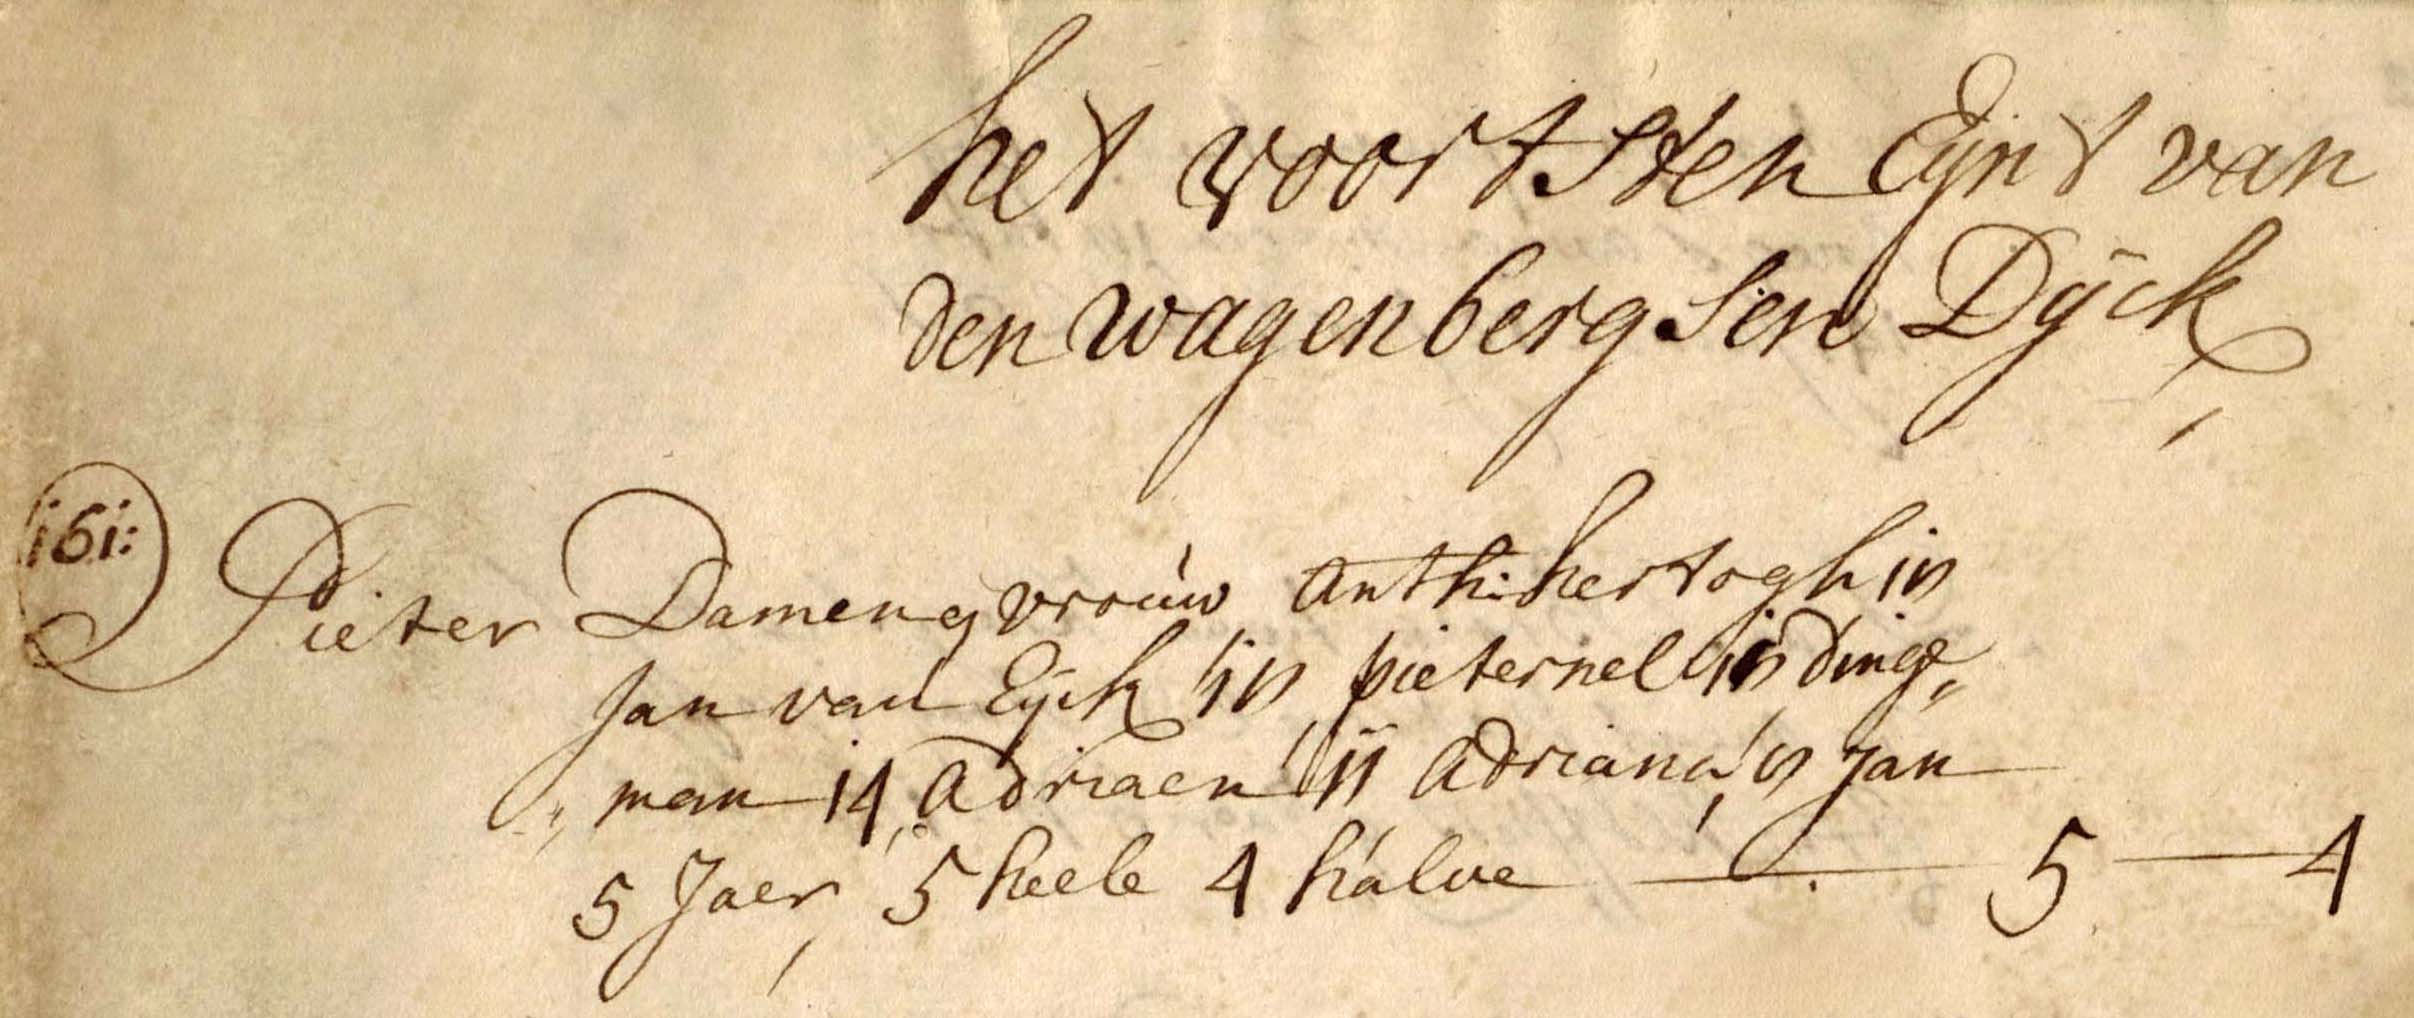 het voortsten Eynt van
den wagenbergsen Dÿck
161: Pieter Damen q vrouw Anth: hertogh in
Jan van Eÿck in pieternel in dinge„
„man 14, Adriaen 11 Adriana, in Jan
5 Jaer, 5 heele 4 halve — 5 — 4